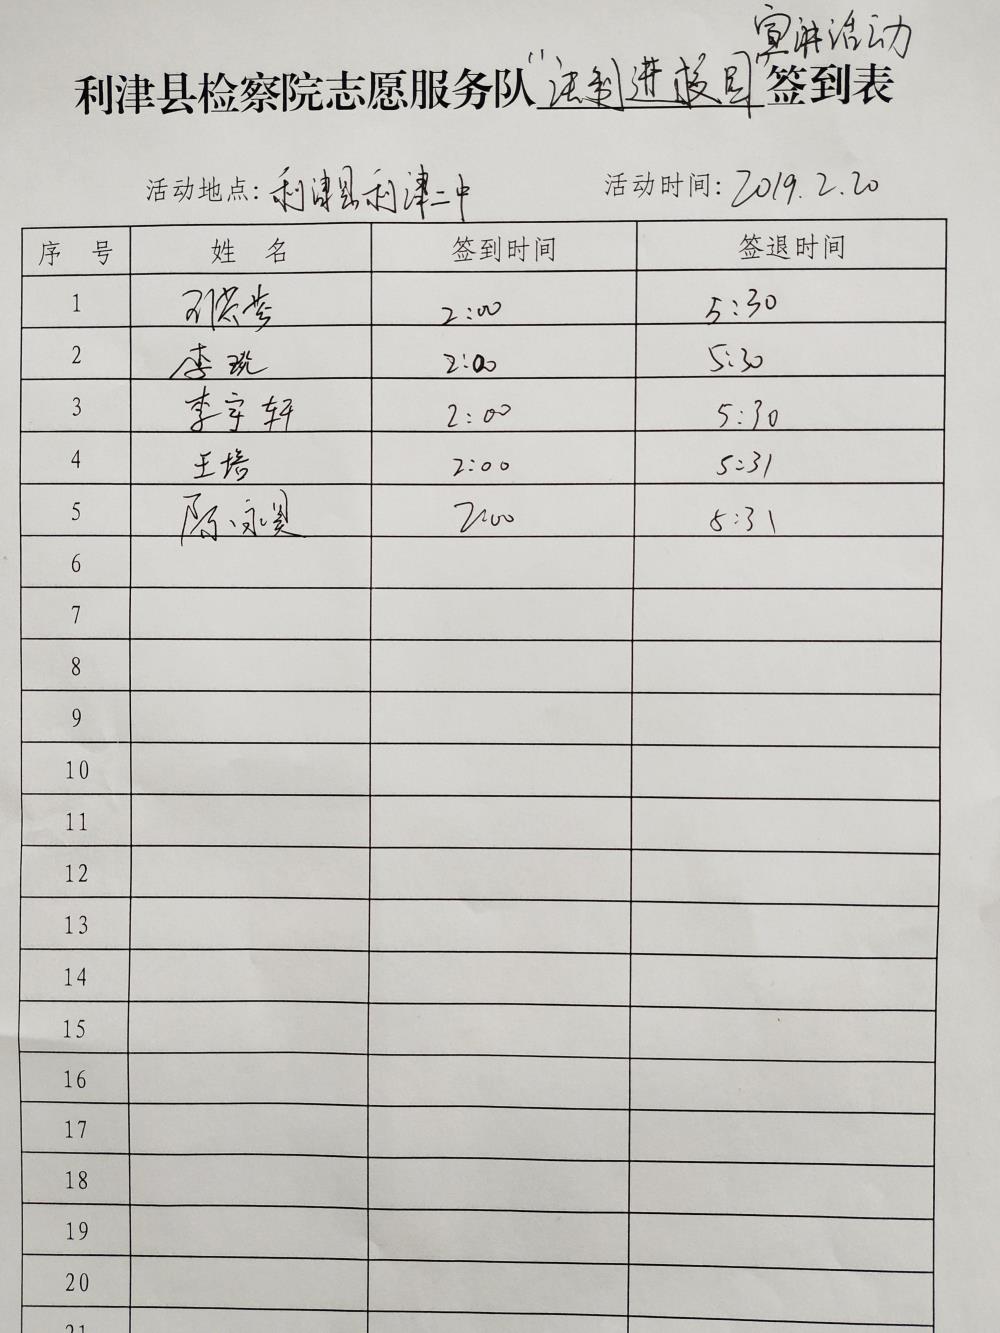 宣讲活动
利津县检察院志愿服务队“法制进校园”签到表
活动地点: 利津县利津二中 活动时间: 2019.2.20
序 号 姓 名 签到时间 签退时间
1 2:00 5:30
2 李 2:00 5:30
3 李宇轩 2:00 5:30
4 王培 2:00 5:31
5 陈永贤 2:00 5:31
6
7
8
9
10
11
12
13
14
15
16
17
18
19
20
21